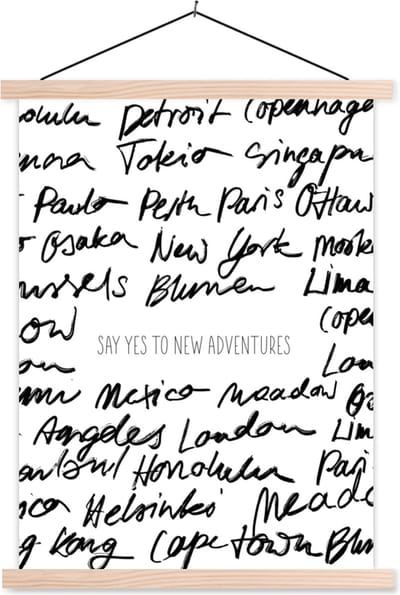 olulu Detroit Copenhage
Tokio Singapu
Paulo Perth Paris Ottaw
Osaka New York Mosk
ussels Blumen Lima
ow Cope
SAY YES TO NEW ADVENTURES
Lon
Mexico Meadow
Angeles London Lim
anbul Honolulu Pari
ico Helsinki Meado
g Kong Cape Town Blum